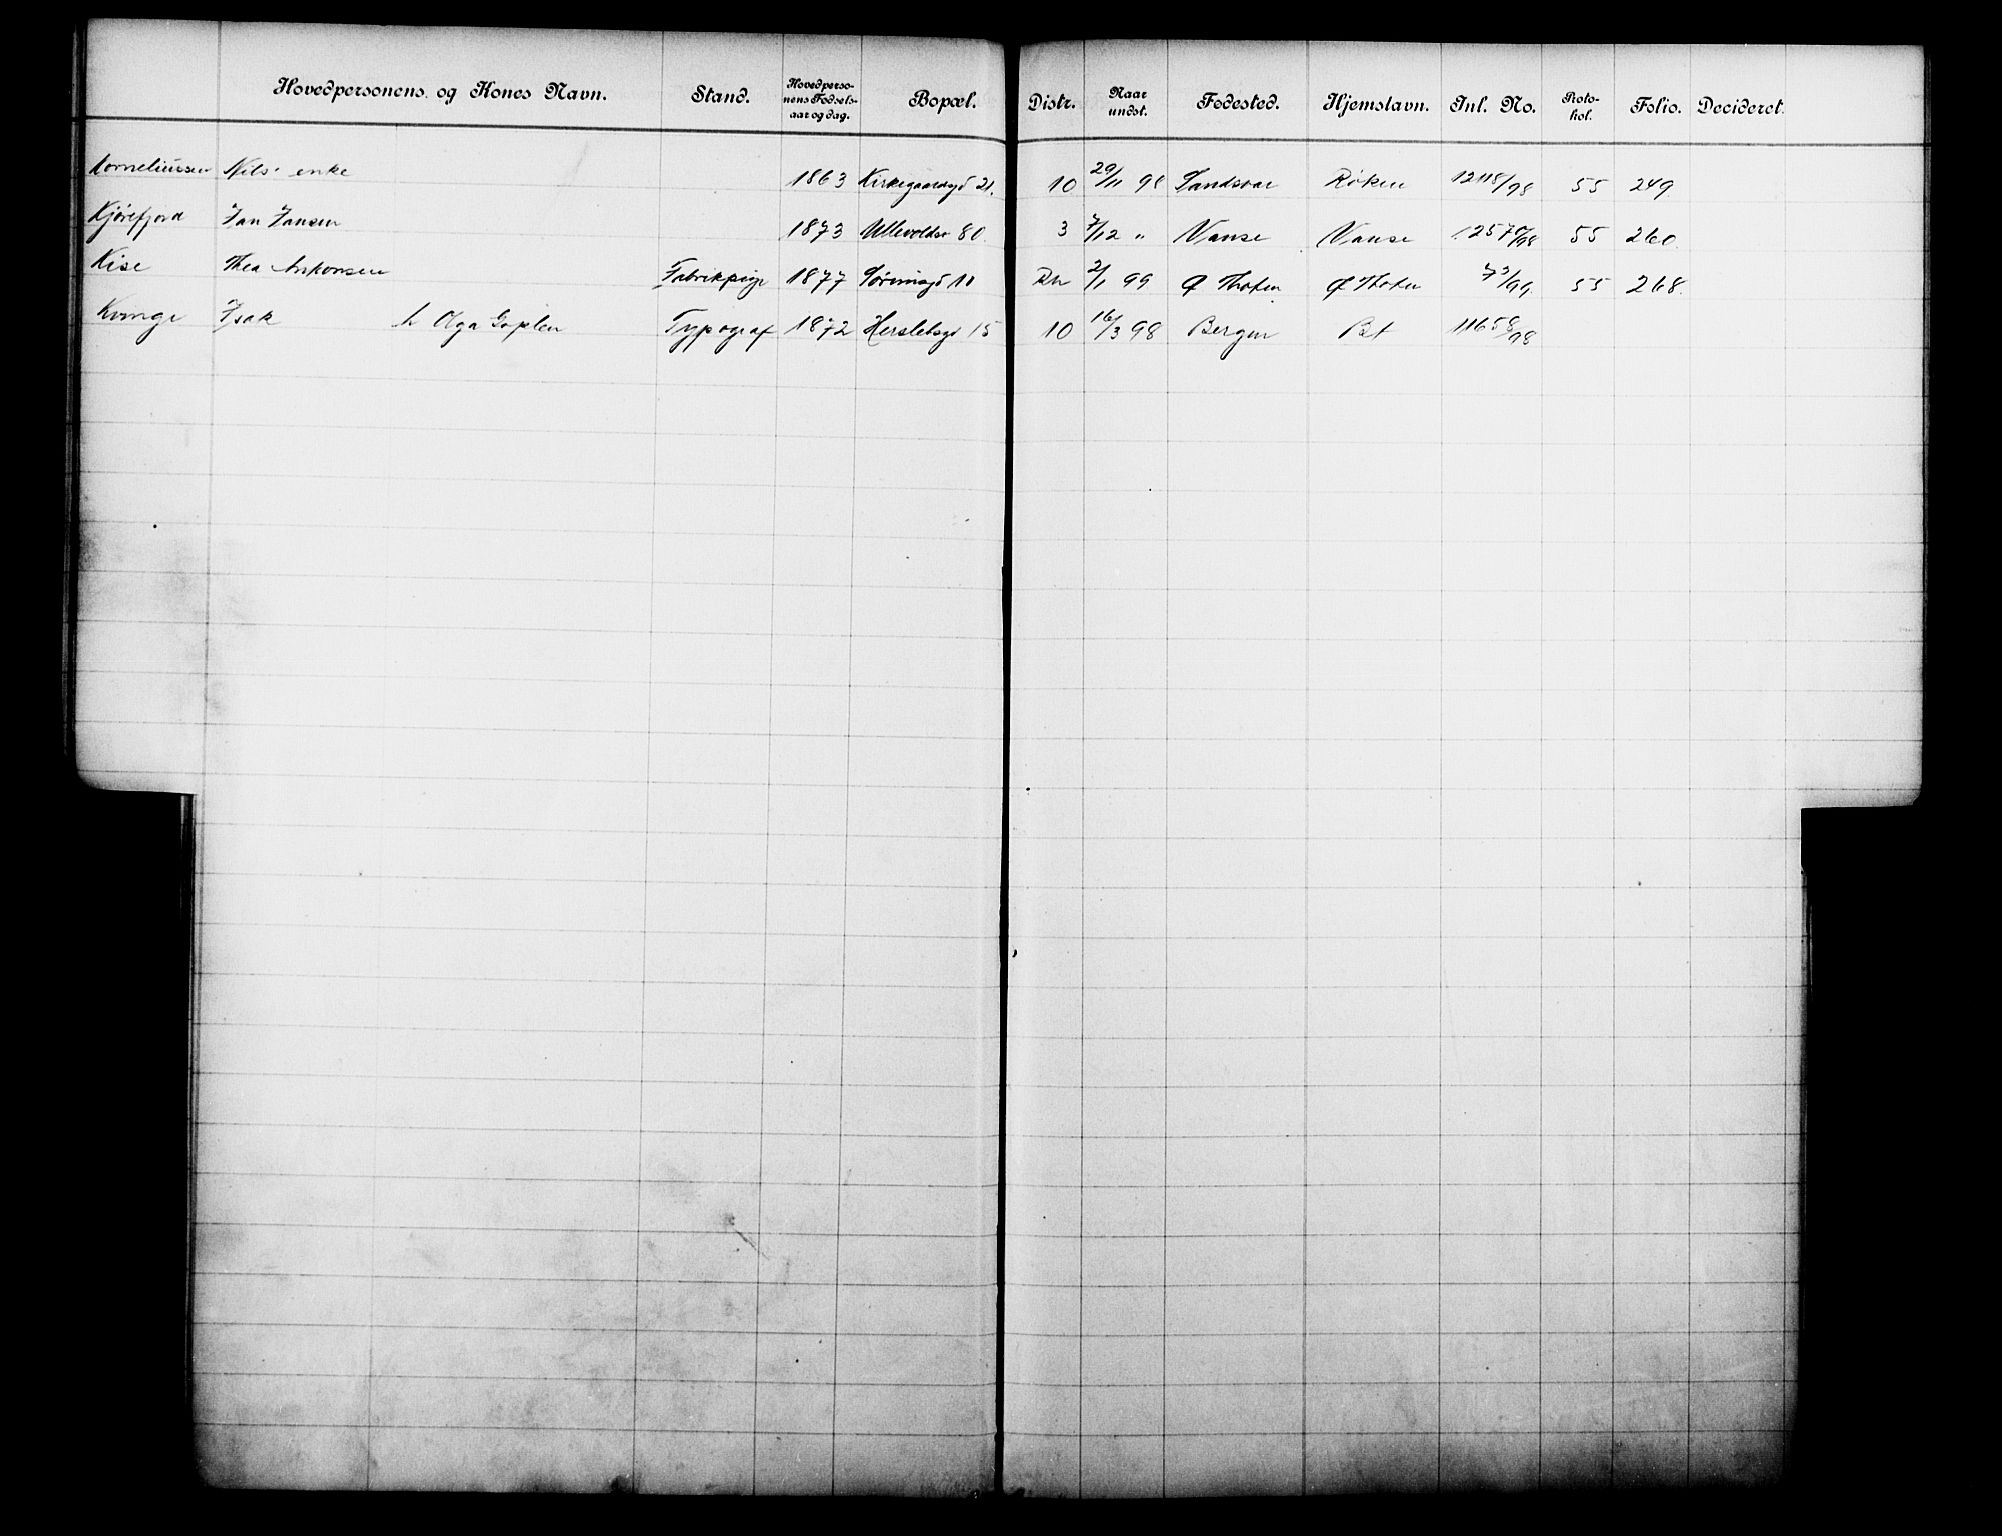 Hovedpersonens og Kones Navn. Stand. Hovedperso-nens Fødsels-aar og dag. Bopæl. Distr. Naar undst. Fødested. Hjemstavn. Inl. No. Proto-kol. Folio. Decideret.
Korneliussen Nils' enke 1863 Kirkegaardsgd 21. 10 29/11 98 Sandsvær Røken 12118/98 55 249.
Kjørefjord Jan Jansen 1873 Ullevoldsv 80. 3 7/12 " Vanse Vanse 12570/98 55 260.
Kise Thea Antonsen Fabrikpige 1877 10 2/1 99 Ø Thoten Ø Thoten 73/99. 55 268.
Kvinge Isak h Olga Goplen Typograf 1872 Herslebsgd 15 10 16/3 98 Bergen Bet 11658/98